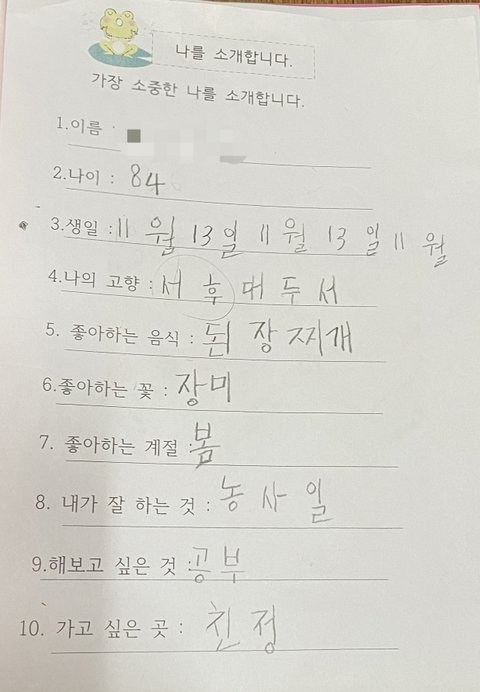 나를 소개합니다.
가장 소중한 나를 소개합니다.
1.이름 :
2.나이 : 84
3.생일 : 11 월 13 일 11 월 13 일 11 월
4.나의 고향 : 서 후 대 두 서
5. 좋아하는 음식 : 된 장 찌개
6.좋아하는 꽃 : 장미
7. 좋아하는 계절 : 봄
8. 내가 잘 하는 것 : 농 사 일
9.해보고 싶은 것 : 공 부
10. 가고 싶은 곳 : 친 정